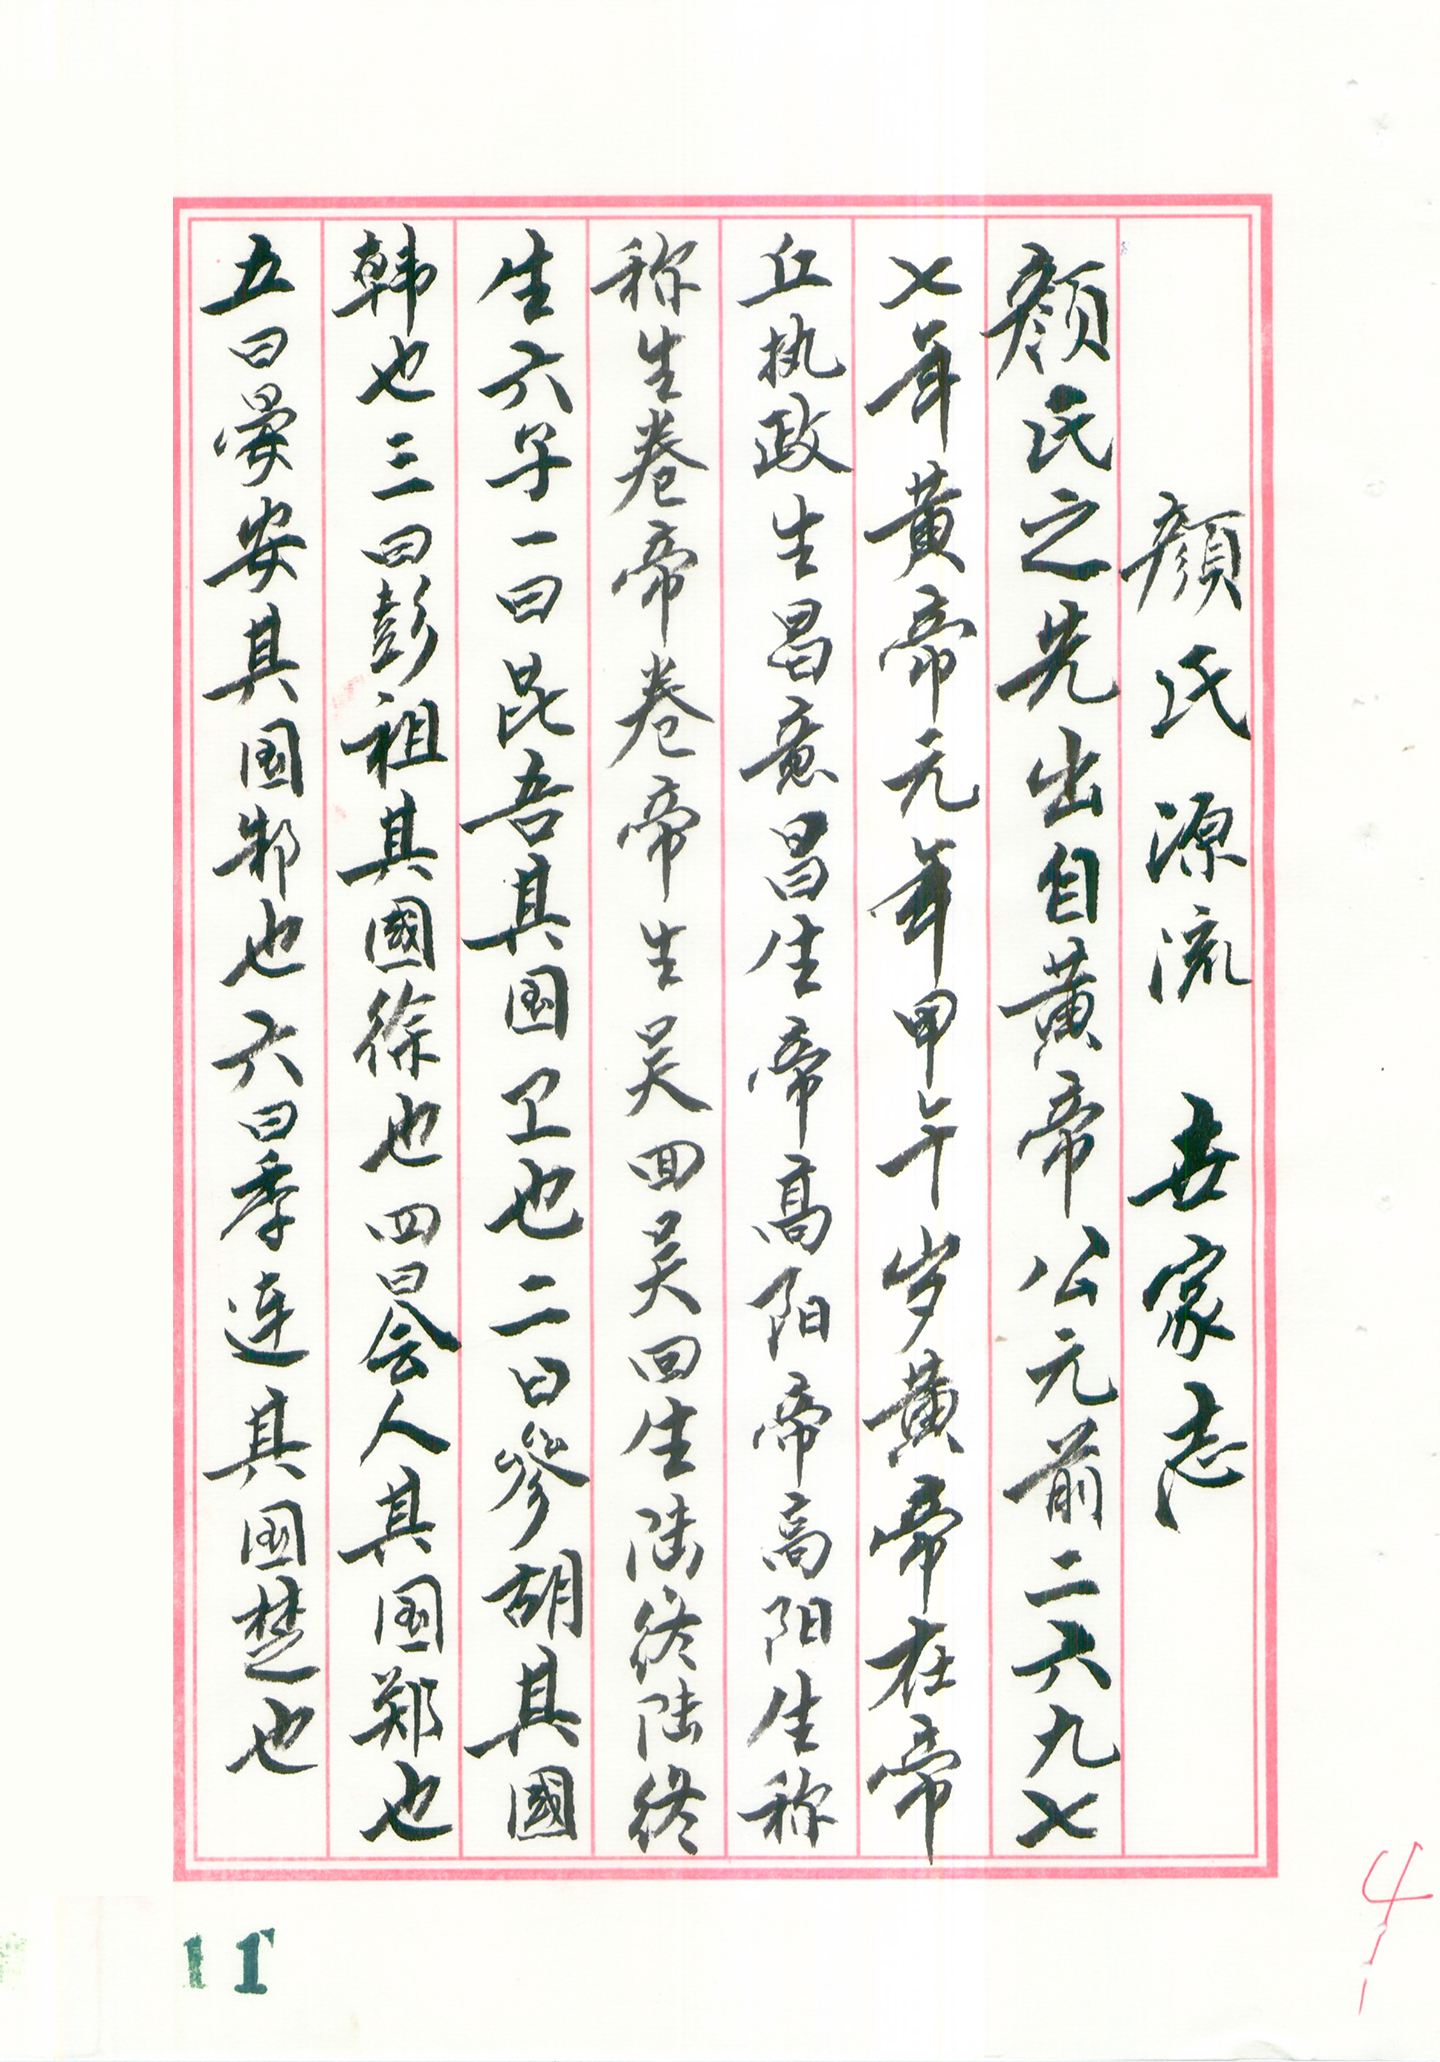 顏氏源流 世家志
颜氏之先出自黄帝公元前二六九七
七年黄帝元年甲午岁黄帝在帝
丘执政生昌意昌生帝高阳帝高阳生称
称生卷帝卷帝生吴回吴回生陆终陆终
生六子一曰昆吾其国卫也二曰參胡其國
韩也三曰彭祖其國徐也四曰会人其国郑也
五曰晏安其国邾也六曰季连其国楚也
11
4